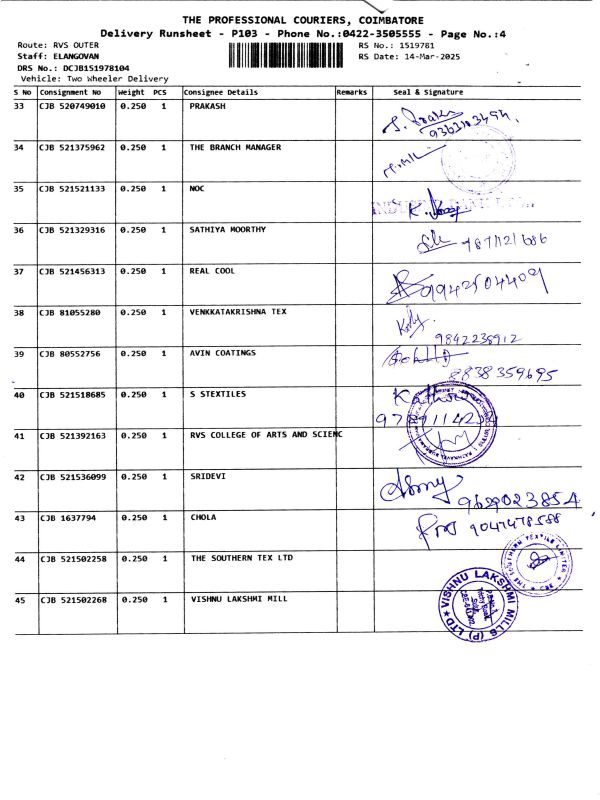 THE PROFESSIONAL COURIERS, COIMBATORE
Delivery Runsheet - P103 - Phone No.:0422-3505555 - Page No.:4
Route: RVS OUTER RS No.: 1519781
Staff: ELANGOVAN RS Date: 14-Mar-2025
DRS No.: DCJB151978104
Vehicle: Two Wheeler Delivery
S No Consignment No Weight PCS Consignee Details Remarks Seal & Signature
33 CJB 520749010 0.250 1 PRAKASH
34 CJB 521375962 0.250 1 THE BRANCH MANAGER
35 CJB 521521133 0.250 1 NOC
36 CJB 521329316 0.250 1 SATHIYA MOORTHY
37 CJB 521456313 0.250 1 REAL COOL
9942504409
38 CJB 81055280 0.250 1 VENKKATAKRISHNA TEX
9842235912
39 CJB 80552756 0.250 1 AVIN COATINGS
8838359695
40 CJB 521518685 0.250 1 S STEXTILES
41 CJB 521392163 0.250 1 RVS COLLEGE OF ARTS AND SCIENC
42 CJB 521536099 0.250 1 SRIDEVI
9629023854
43 CJB 1637794 0.250 1 CHOLA
9047478588
44 CJB 521502258 0.250 1 THE SOUTHERN TEX LTD
THE SOUTHERN TEXTILE LIMITED
CBE
45 CJB 521502268 0.250 1 VISHNU LAKSHMI MILL
VISHNU LAKSHMI MILLS (P) LTD